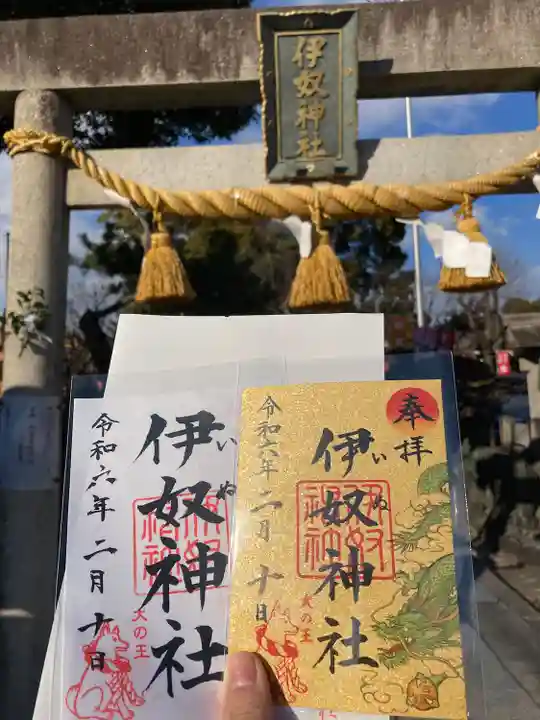 伊奴神社
伊奴神社
いぬ
令和六年二月十日
犬の王
奉拝
伊奴神社
いぬ
令和六年二月十日
犬の王